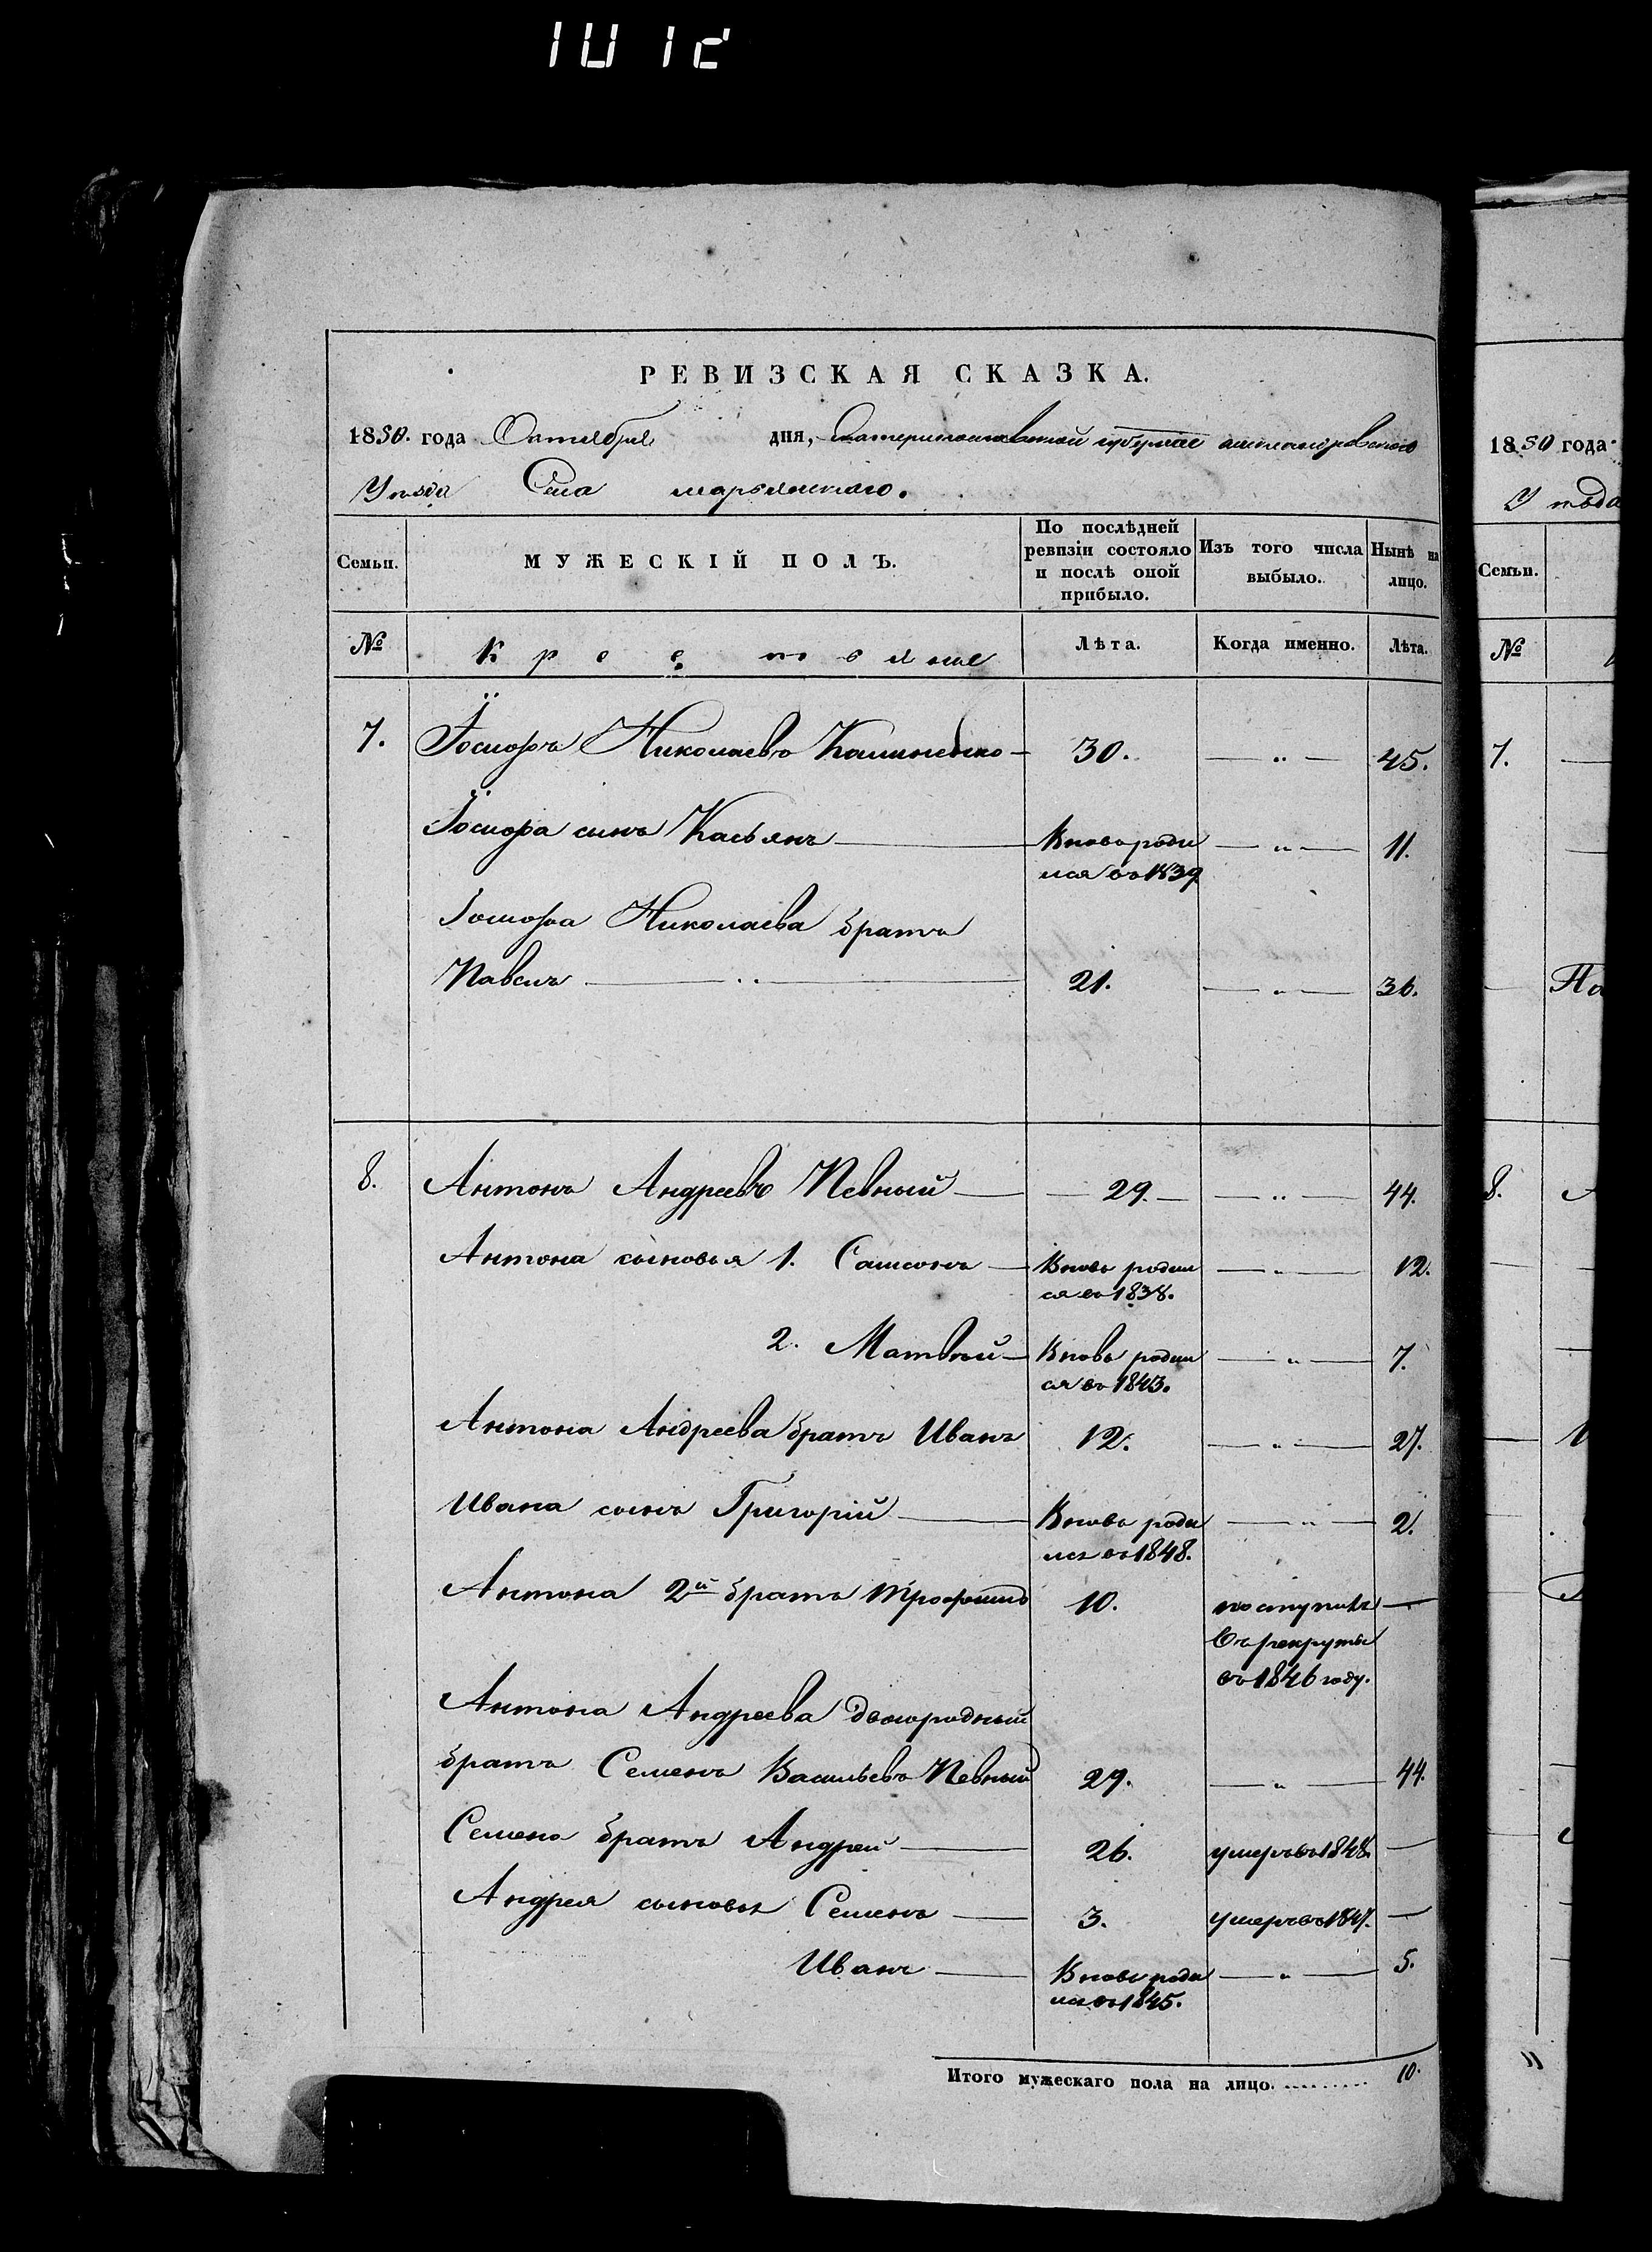 РЕВИЗСКАЯ СКАЗКА.
1850. года Октября дня, Екатеринославской губернiи александровскаго
Уѣзда Села марьянскаго.
Семьи.
МУЖЕСКІЙ ПОЛЪ.
По послѣдней ревизіи состояло и послѣ оной прибыло.
Изъ того числа выбыло.
Нынѣ на лицо.
№
Крестьяне
Лѣта.
Когда именно.
Лѣта.
7. Іосифъ Николаевъ Калиненко 30. — „ — 45.
Іосифа синъ Касьянъ Вновь роди — „ — 11.
лся въ 1839
Іосифа Николаева братъ
Павелъ — „ — 21. — „ — 36.
8. Антонъ Андреевъ Певный — 29. — — „ — 44.
Антона сыновья 1. Самсонъ — Вновь родил — „ — 12.
ся въ 1838.
2. Матвѣй — Вновь родил — „ — 7.
ся въ 1843.
Антона Андреева братъ Иванъ 12. — „ — 27.
Ивана сынъ Григорій — Вновь роди — „ — 2.
лся въ 1848.
Антона 2й братъ Трофимъ 10. поступилъ —
въ рекруты
въ 1846 году.
Антона Андреева двоюродный
братъ Семенъ Васильевъ Певный 29. — „ — 44.
Семена братъ Андрей — 26. умеръ въ 1848. —
Андрея сыновья Семенъ — 3. умеръ въ 1847. —
Иванъ — Вновь роди — „ — 5.
лся въ 1845.
Итого мужескаго пола на лицо. ......... 10.
1850 года
Уѣзда
Семьи.
№
7.
Па
8.